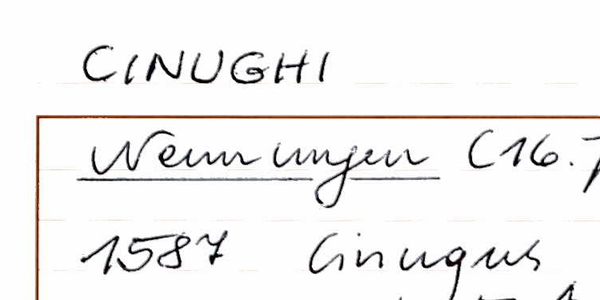 CINUGHI
Nennungen (16.
1587 Cinugus